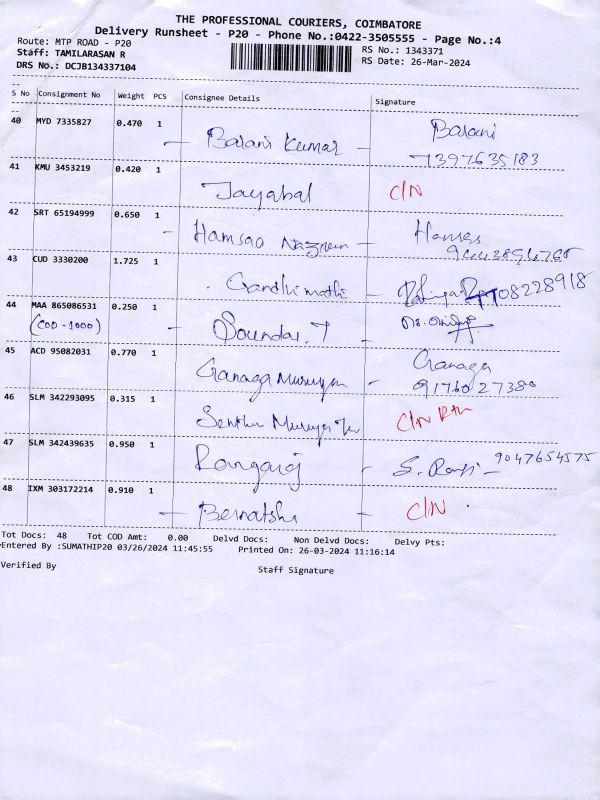 THE PROFESSIONAL COURIERS, COIMBATORE
Delivery Runsheet - P20 - Phone No.:0422-3505555 - Page No.:4
Route: MTP ROAD - P20 RS No.: 1343371
Staff: TAMILARASAN R RS Date: 26-Mar-2024
DRS No.: DCJB134337104
S No Consignment No Weight PCS Consignee Details Signature
40 MYD 7335827 0.470 1
Barani Kumar Barani
7397635183
41 KMU 3453219 0.420 1
Jayabal C/N
42 SRT 65194999 0.650 1
Hamsaa
43 CUD 3330200 1.725 1
Gandhimathi
44 MAA 865086531 0.250 1
(COD-1000) Soundar. T
45 ACD 95082031 0.770 1
Ganaga Murugan Ganaga
9176027380
46 SLM 342293095 0.315 1
C/N
47 SLM 342439635 0.950 1
Rangaraj S. 9047654575
48 IXM 303172214 0.910 1
C/N
Tot Docs: 48 Tot COD Amt: 0.00 Delvd Docs: Non Delvd Docs: Delvy Pts:
Entered By :SUMATHIP20 03/26/2024 11:45:55 Printed On: 26-03-2024 11:16:14
Verified By Staff Signature